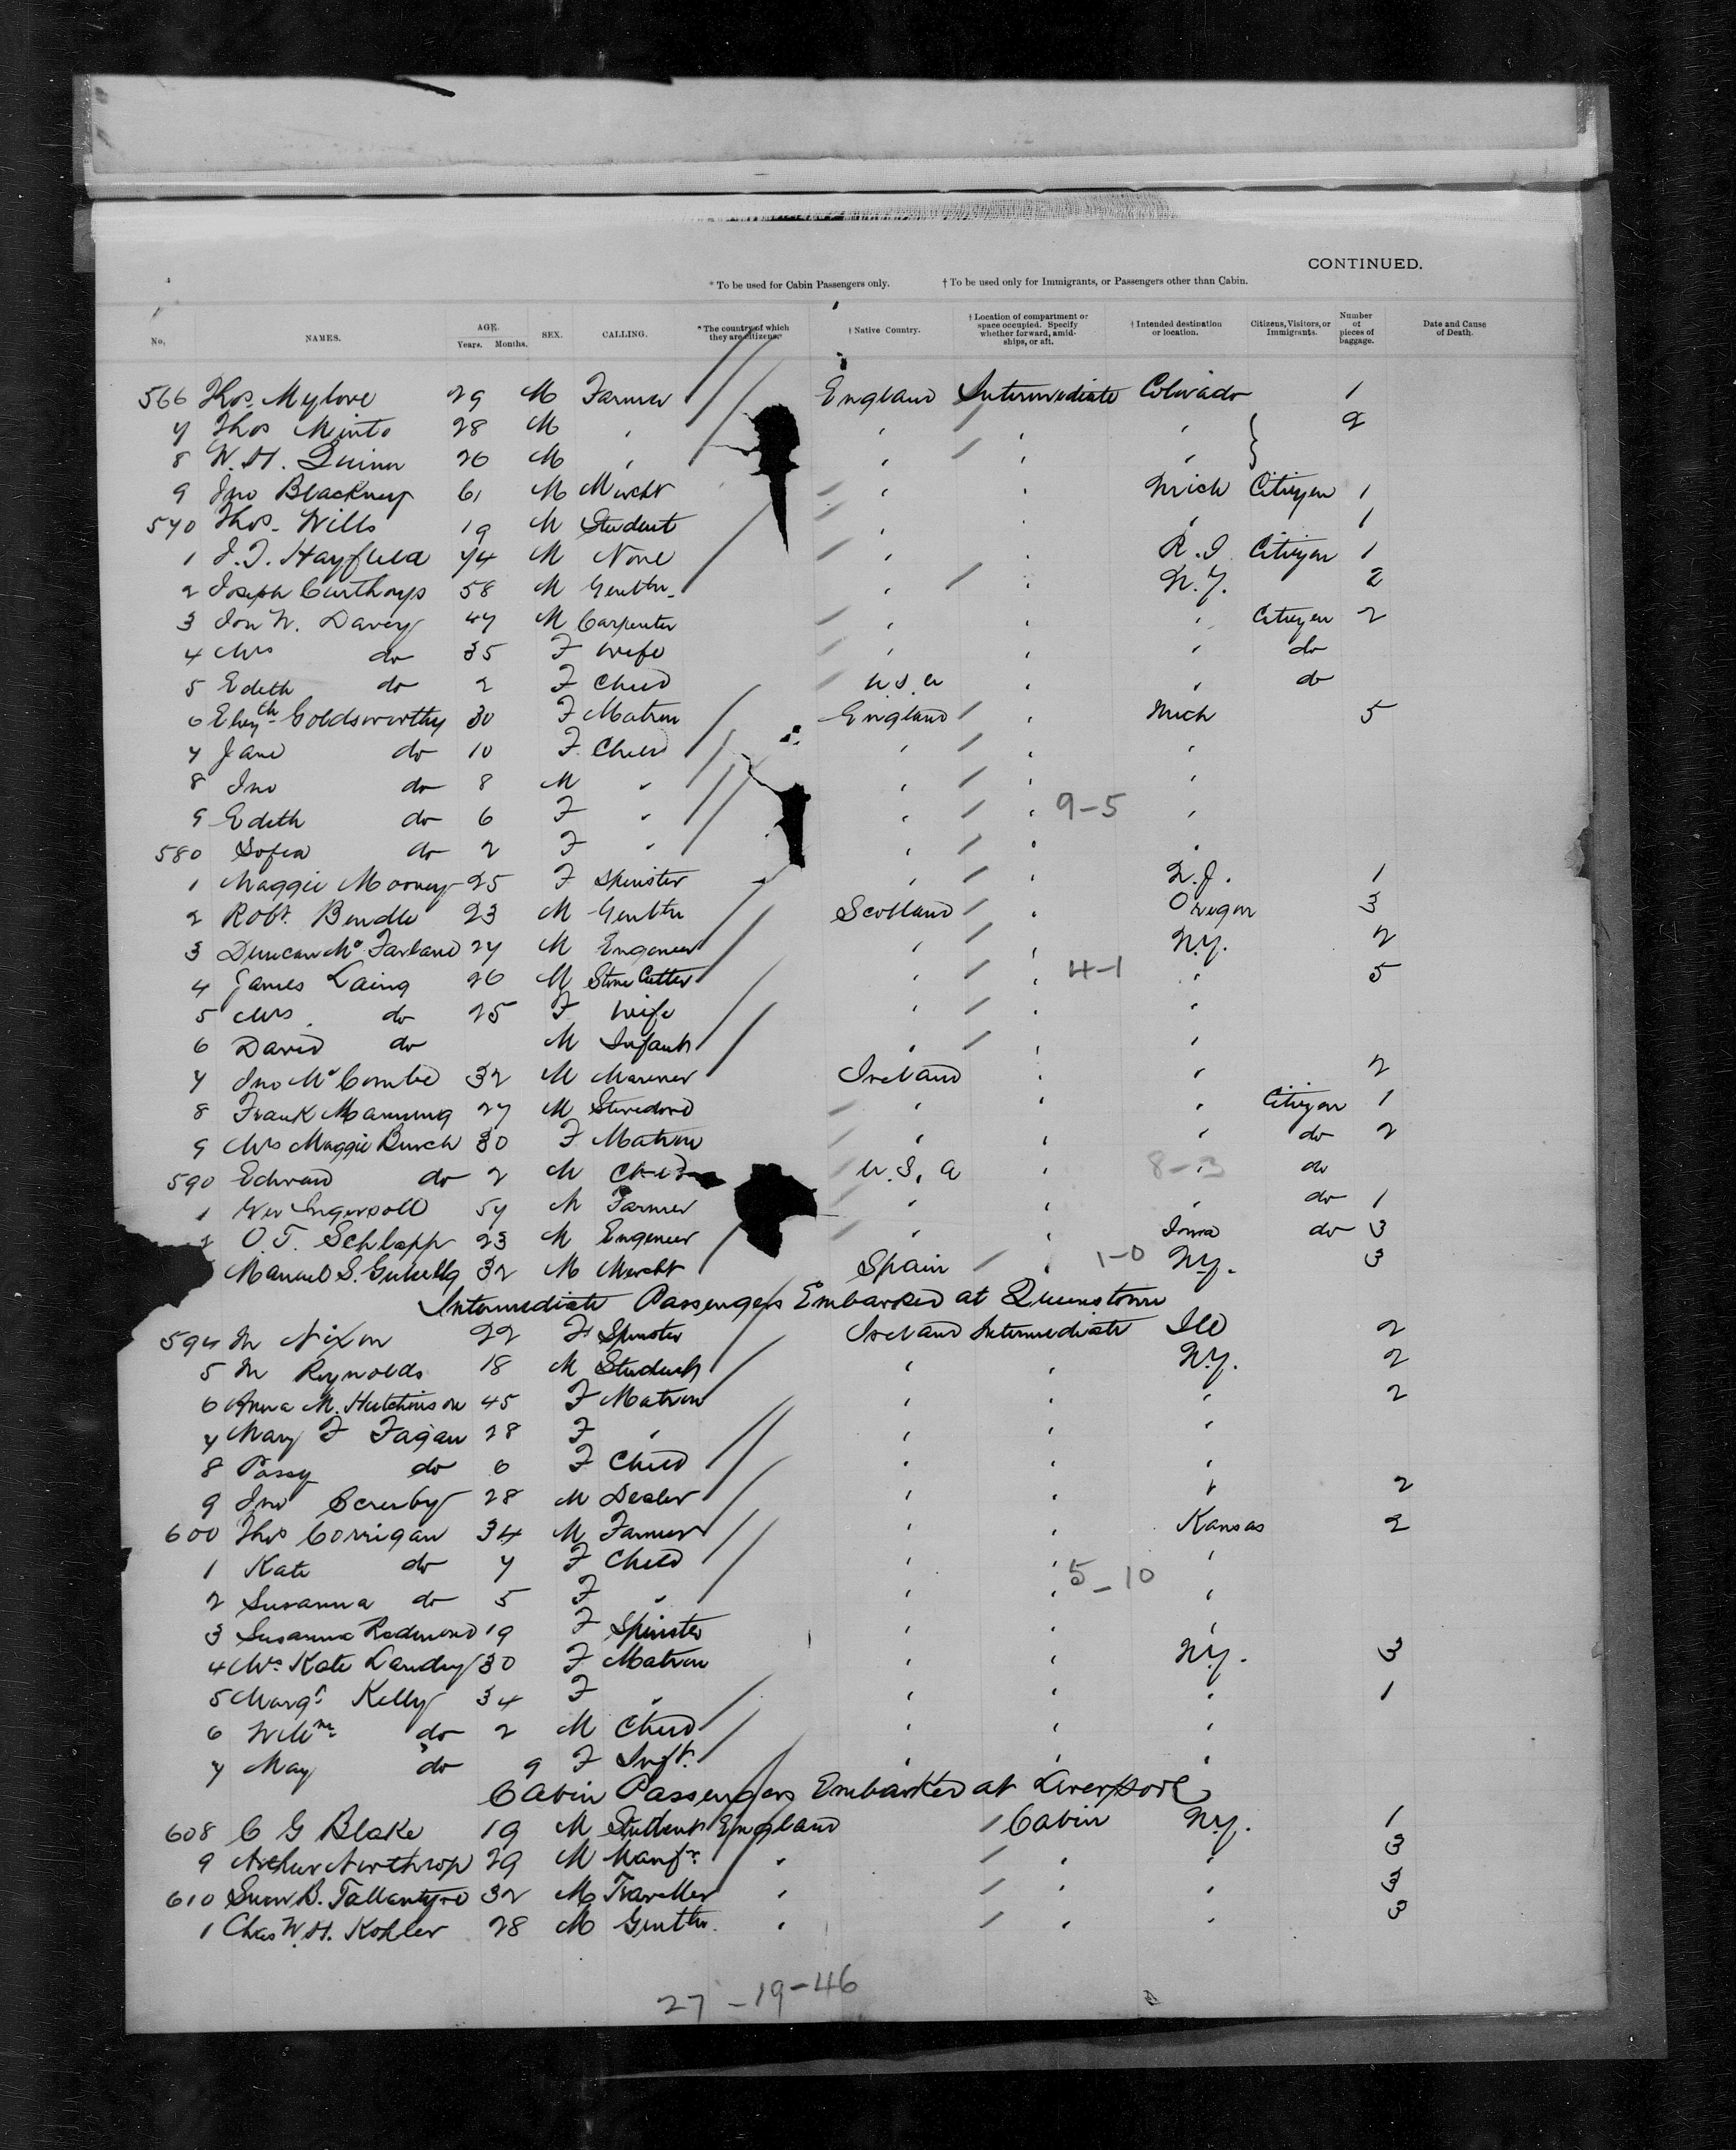 CONTINUED.
* To be used for Cabin Passengers only. † To be used only for Immigrants, or Passengers other than Cabin.
No. NAMES. AGE. Years. Months. SEX. CALLING. * The country of which they are citizens. † Native Country. † Location of compartment or space occupied. Specify whether forward, amidships, or aft. † Intended destination or location. Citizens, Visitors, or Immigrants. Number of pieces of baggage. Date and Cause of Death.
566 Thos. Mylove 29 M Farmer England Intermediate Colorado 1
7 Thos Minto 28 M " " " " 2
8 W. H. Quinn 26 M " " " "
9 Jno Blackney 61 M Mercht " " Mich Citizen 1
570 Thos. Wills 19 M Student " " " 1
1 J. T. Hayfield 74 M None " " R.I. Citizen 1
2 Joseph 58 M Gentln. " " N.Y. 2
3 Jon W. Davey 47 M Carpenter " " " Citizen 2
4 Mrs do 35 F Wife " " " do
5 Edith do 2 F Child U.S.A " " do
6 Elizth Goldsworthy 30 F Matron England " Mich 5
7 Jane do 10 F Child " " "
8 Jno do 8 M " " " "
9 Edith do 6 F " " " 9-5 "
580 Sofia do 2 F " " " "
1 Maggie Mooney 25 F Spinster " " N.J. 1
2 Robt. Bendle 23 M Gentln Scotland " Oregon 3
3 Duncan Mc Farland 27 M Engineer " " N.Y. 2
4 James Laing 26 M Stone Cutter " " 4-1 " 5
5 Mrs. do 25 F Wife " " "
6 David do M Infant " " "
7 Jno Mc Combe 32 M Mariner Ireland " " 2
8 Frank Manning 27 M Stevedore " " " Citizen 1
9 Mrs Maggie Burch 30 F Matron " " " do 2
590 Edward do 2 M Child U.S.A " 8-3 " do
1 Ingersoll 57 M Farmer " " " do 1
2 O. T. Schlapp 23 M Engineer " " Iowa do 3
Manuel S. 32 M Mercht Spain " 1-0 N.Y. 3
Intermediate Passengers Embarked at Queenstown
594 M Nixon 22 F Spinster Ireland Intermediate Ill 2
5 M Reynolds 18 M Student " " N.Y. 2
6 Anna M. Hutchinson 45 F Matron " " " 2
7 Mary F Fagan 28 F " " " "
8 Possy do 6 F Child " " "
9 Jno Scrulby 28 M Dealer " " " 2
600 Thos Corrigan 34 M Farmer " " Kansas 2
1 Kate do 7 F Child " " "
2 Susanna do 5 F " " " 5-10 "
3 Susanna Redmond 19 F Spinster " " "
4 Mrs Kate Landry 30 F Matron " " N.Y. 3
5 Margt Kelly 34 F " " " " 1
6 Willm do 2 M Child " " "
7 May do 9 F Inft. " " "
Cabin Passengers Embarked at Liverpool
608 C G Blake 19 M Student England Cabin N.Y. 1
9 Arthur Northrop 29 M Manfr " " " 3
610 Swan B. Tallantyre 32 M Traveller " " " 3
1 Chas W. H. Kohler 28 M Gentln. " " " 3
27-19-46